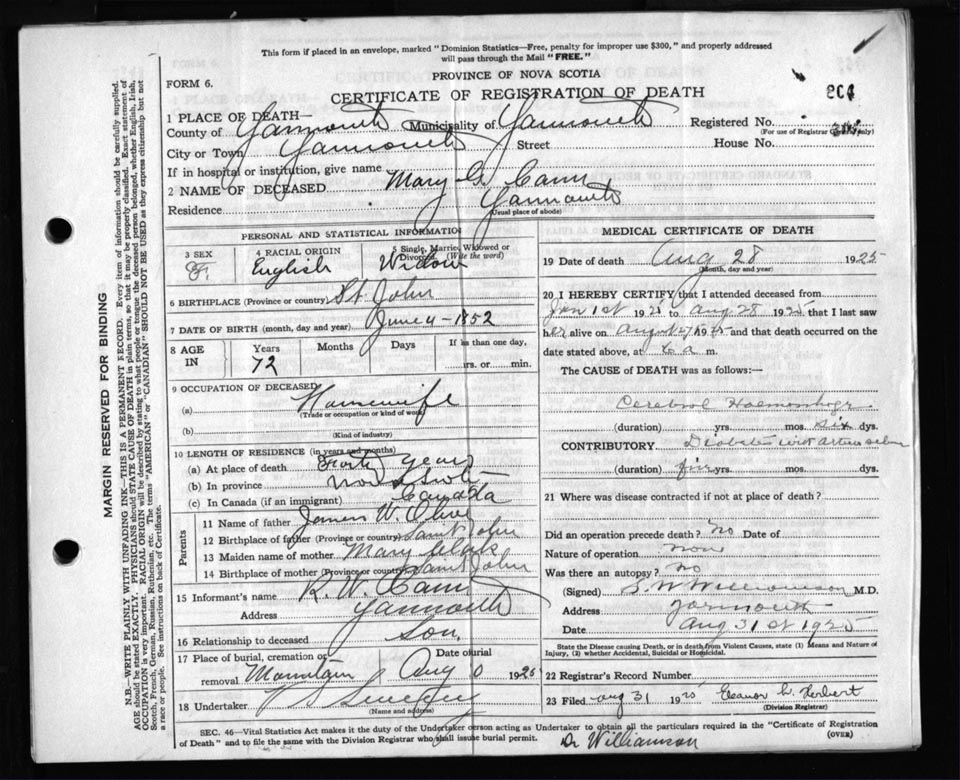 This form if placed in an envelope, marked "Dominion Statistics—Free, penalty for improper use $300," and properly addressed
will pass through the Mail "FREE."
PROVINCE OF NOVA SCOTIA
FORM 6.
CERTIFICATE OF REGISTRATION OF DEATH
1 PLACE OF DEATH—
County of Yarmouth Municipality of Yarmouth Registered No.
(For use of Registrar General only)
City or Town Yarmouth Street House No.
If in hospital or institution, give name
2 NAME OF DECEASED Mary G. Cann
Residence Yarmouth
(Usual place of abode)
PERSONAL AND STATISTICAL INFORMATION
3 SEX F. 4 RACIAL ORIGIN English 5 Single, Married, Widowed or Divorced (Write the word) Widow
6 BIRTHPLACE (Province or country) St. John
7 DATE OF BIRTH (month, day and year) June 4 - 1852
8 AGE IN Years 72 Months Days If less than one day, hrs. or min.
9 OCCUPATION OF DECEASED
(a) Housewife
(Trade or occupation or kind of work)
(b)
(Kind of industry)
10 LENGTH OF RESIDENCE (in years and months)
(a) At place of death years
(b) In province Nova Scotia
(c) In Canada (if an immigrant) Canada
Parents
11 Name of father James W. Olive
12 Birthplace of father (Province or country) Saint John
13 Maiden name of mother Mary Clark
14 Birthplace of mother (Province or country) Saint John
15 Informant's name R. W. Cann
Address Yarmouth
16 Relationship to deceased Son.
17 Place of burial, cremation or removal Mountain Date of burial Aug 1925
18 Undertaker
(Name and address)
MEDICAL CERTIFICATE OF DEATH
19 Date of death Aug 28 1925
(Month, day and year)
20 I HEREBY CERTIFY that I attended deceased from
Jan 1st 1925 to Aug 28 1925 that I last saw
her alive on August 27th 1925 and that death occurred on the
date stated above, at 6 a m.
The CAUSE of DEATH was as follows:—
Cerebral Haemorrhage
(duration) yrs. mos. six dys.
CONTRIBUTORY Diabetes with
(duration) five yrs. mos. dys.
21 Where was disease contracted if not at place of death?
Did an operation precede death? No Date of
Nature of operation None
Was there an autopsy? No
(Signed) S. W. Williamson M.D.
Address Yarmouth
Date Aug 31st 1925
State the Disease causing Death, or in death from Violent Causes, state (1) Means and Nature of
Injury, (2) whether Accidental, Suicidal or Homicidal.
22 Registrar's Record Number
23 Filed Aug 31 1925 Eleanor L. Herbert
(Division Registrar)
SEC. 46—Vital Statistics Act makes it the duty of the Undertaker or person acting as Undertaker to obtain all the particulars required in the "Certificate of Registration
of Death" and to file the same with the Division Registrar who shall issue burial permit. (OVER)
Dr Williamson
MARGIN RESERVED FOR BINDING
N.B.—WRITE PLAINLY WITH UNFADING INK—THIS IS A PERMANENT RECORD. Every item of information should be carefully supplied.
AGE should be stated EXACTLY. PHYSICIANS should STATE CAUSE OF DEATH in plain terms, so that it may be properly classified. Exact statement of
OCCUPATION is very important. RACIAL ORIGIN will be described by stating to what people or tongue the deceased person belonged, whether English, Irish,
Scotch, French, German, Russian, Ruthenian, etc. The terms "AMERICAN" or "CANADIAN" SHOULD NOT BE USED as they express citizenship but not
a race or people. See instructions on back of Certificate.